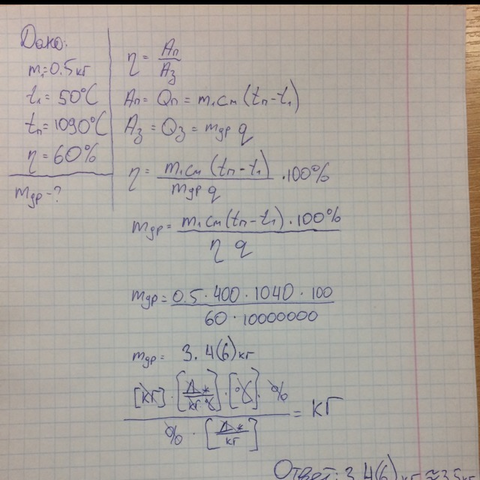 Дано:
m₁=0.5кг
t₁=50°C
tп=1090°C
η=60%
mgp-?
η = Aп/Aз
Aп=Qп=m₁cм(tп-t₁)
Aз=Qз=mgp q
η = m₁cм(tп-t₁)/mgp q ·100%
mgp= m₁cм(tп-t₁)·100%/η q
mgp= 0.5·400·1040·100/60·10000000
mgp= 3.4(6)кг
[кг]·[Дж/кг°C]·[°C]·%/%·[Дж/кг] = кг
Ответ: 3.4(6)кг≈3.5кг